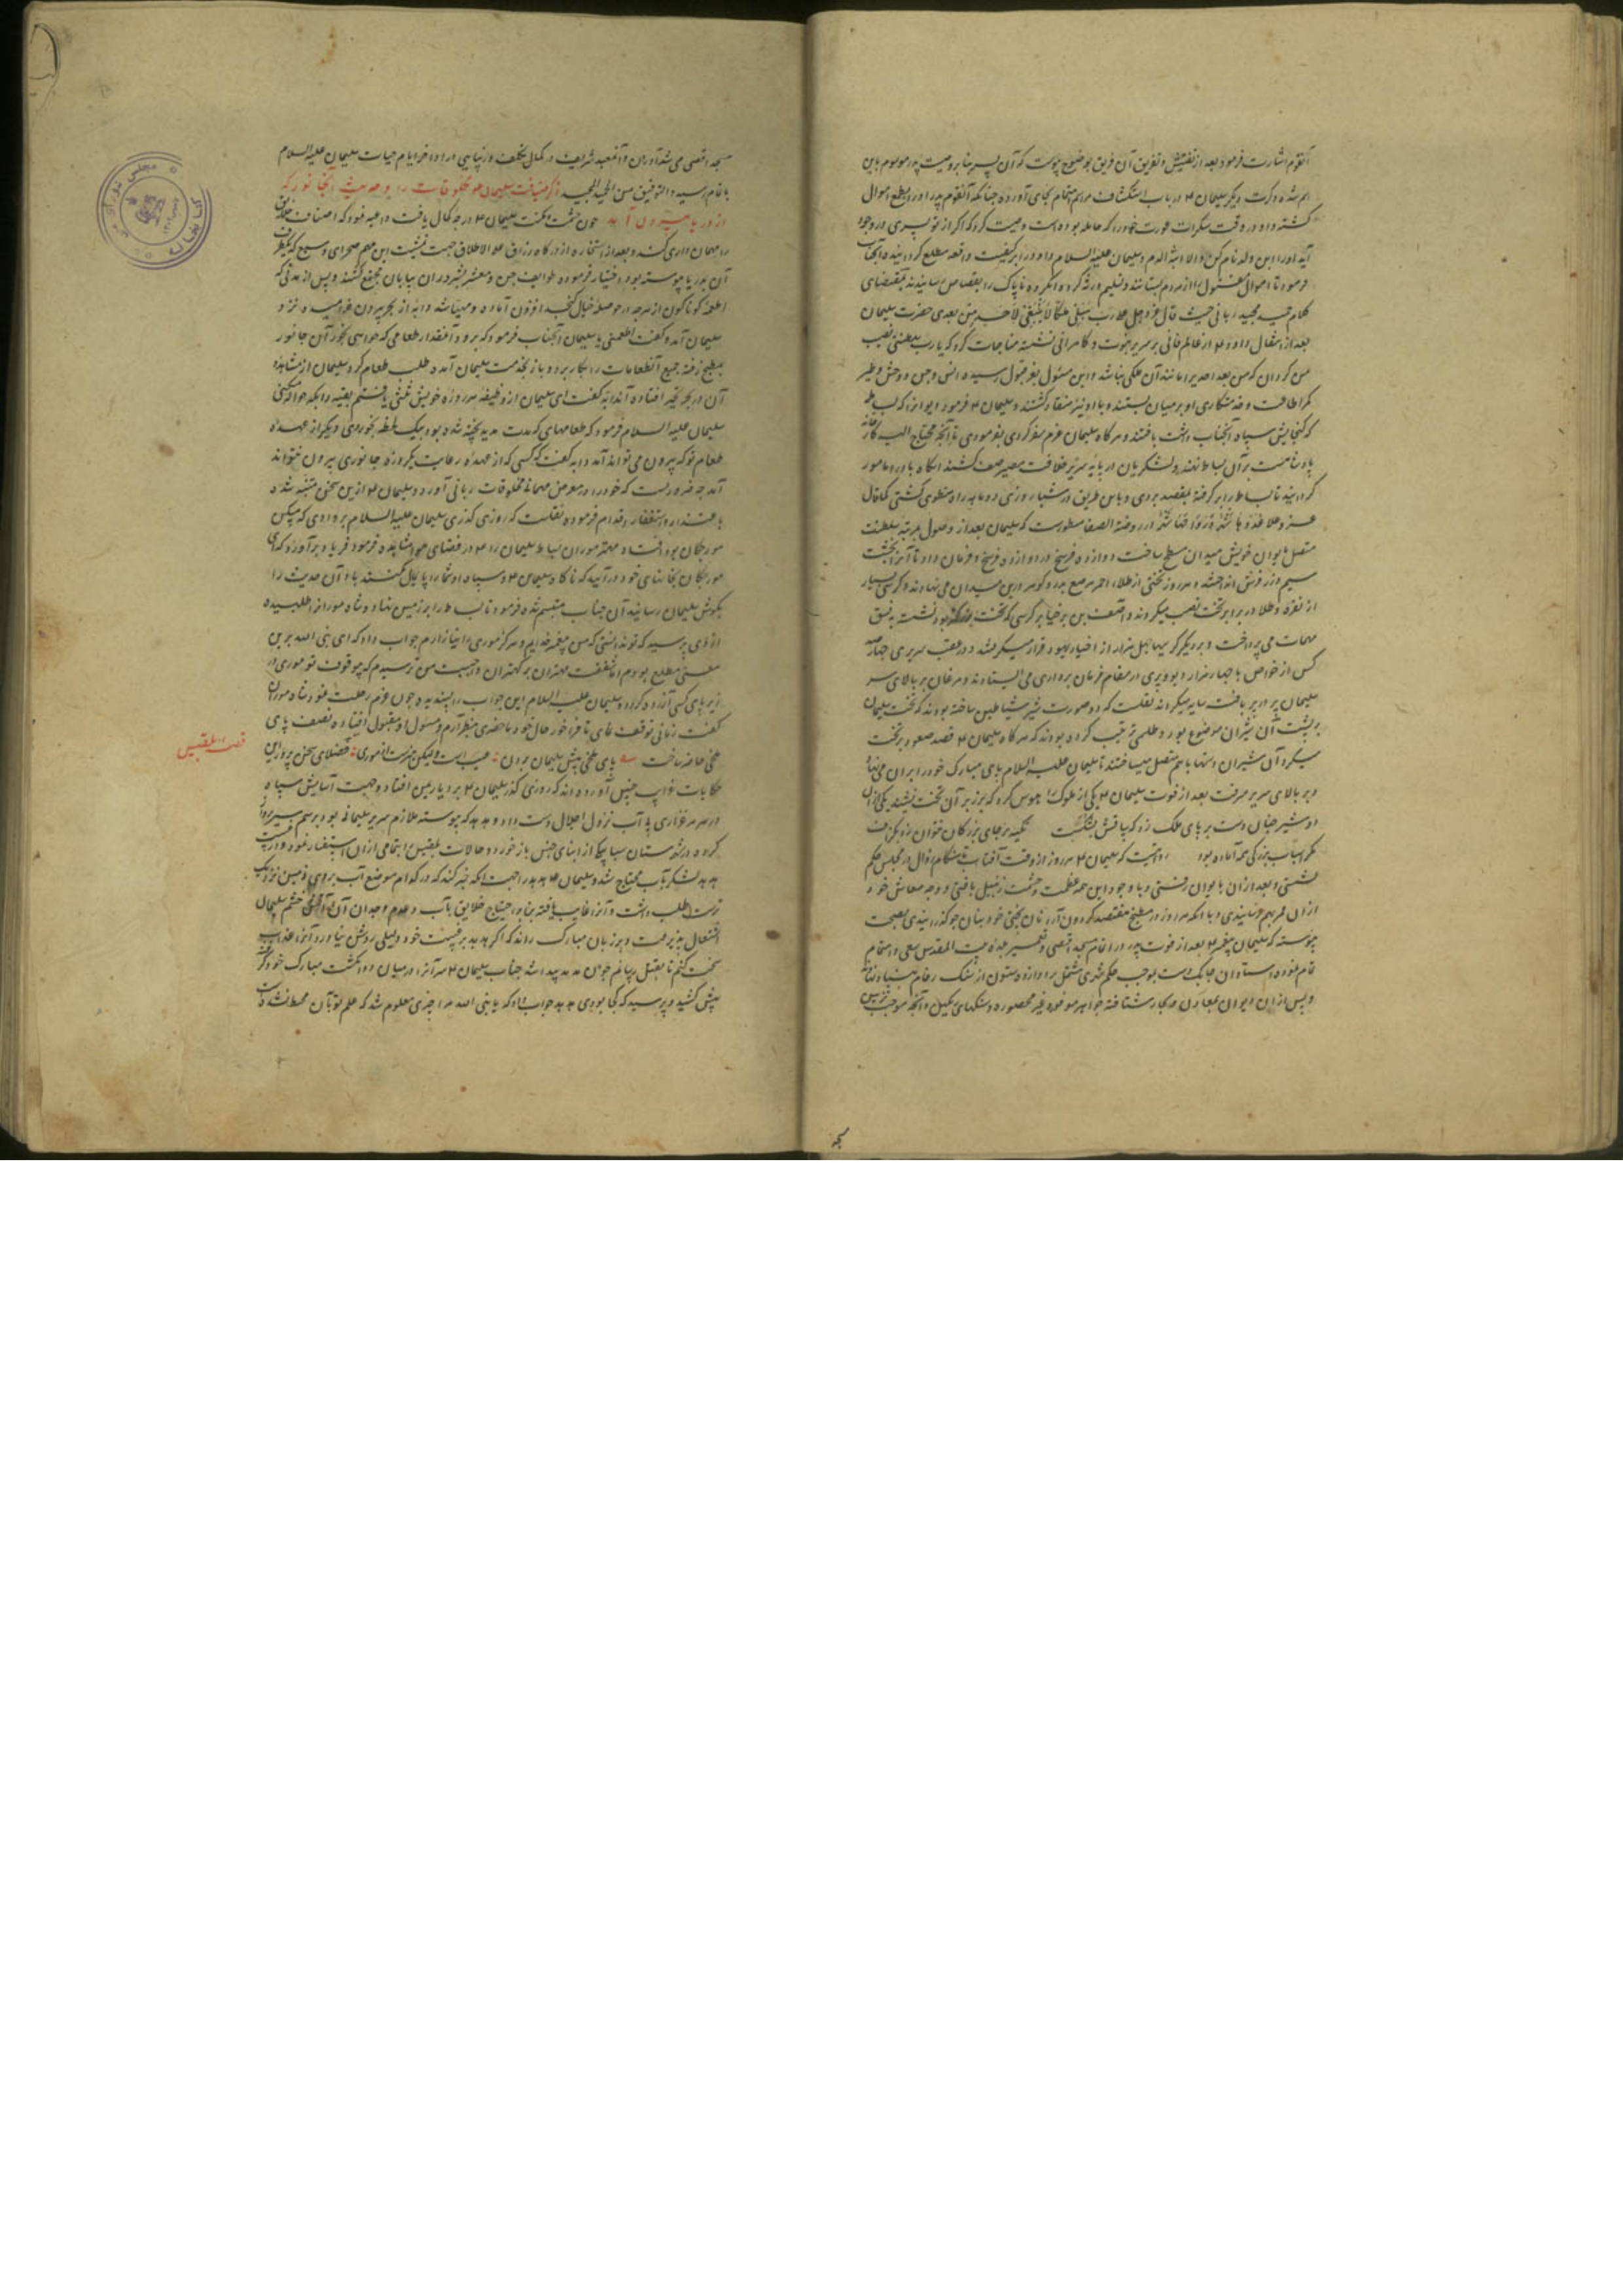 آنقوم اشارت فرمود بعد از تفتیش و تفریق آن فریق بوضوح پیوست که آن پسر بنا بر وصیت پدر موسوم باین
اسم شده و کرت دیگر سلیمان ع در باب استکشاف مراسم اهتمام بجای آورده چنانکه آنقوم پدر او را بطمع اموال
کشته و او در وقت سکرات عورت خود را که حامله بوده است وصیت کرد که اگر از تو پسری در وجود
آید او را ابن ولد نام کن و الا ابنة الدم و سلیمان علیه السلام داود را بر کیفیت واقعه مطلع گردانیده آنجناب
فرمود تا اموال مقتول را از مردم بستانند و تسلیم ورثه کرده آنکروه ناپاک را بقصاص رسانیدند بمقتضای
کلام حمید مجید ربانی حیث قال عز و جل علا رب هب لی ملکا لا ینبغی لاحد من بعدی حضرت سلیمان
بعد از انتقال داود ع از عالم فانی بر سریر نبوت و کامرانی نشسته مناجات کرد که یا رب سلطنتی نصیب
من گردان که من بعد احدی را مانند آن ملکی نباشد و این مسئول بعز قبول رسیده انس و جن و وحش و طیر
کمر اطاعت و خدمتکاری او بر میان بستند و باد نیز منقاد گشتند و سلیمان ع فرمود دیوانرا که بساطی
که گنجایش سپاه آنجناب داشت بافتند و هر گاه سلیمان عزم سفر کردی بفرمودی تا آنچه محتاج الیه کارخانه
پادشاهیست بر آن بساط نهند و لشکریان در پایه سریر خلافت مصیر صف کشند آنگاه باد را مامور
گردانید تا بساط را بر گرفته بمقصد بردی و باین طریق در شبانروزی دو ماهه راه منطوی گشتی کما قال
عز و علا غدوها شهر و رواحها شهر در روضة الصفا مسطورست که سلیمان بعد از وصول بمرتبه سلطنت
متصل بایوان خویش میدان مسطح ساخت دوازده فرسخ در دوازده فرسخ و فرمان داد تا آنرا بخشت
سیم و زر فرش انداختند و هر روز تختی از طلاء احمر مرصع بدر و گوهر در این میدان می نهادند و کرسی بسیار
از نقره و طلا در برابر تخت نصب میکردند و آصف بن برخیا بر کرسی که بتخت نزدیکتر بود نشسته به نسق
مهمات می پرداخت و بر دیگر کرسیها چهل هزار از اخیار یهود قرار میگرفتند و در عقب سریری چهارصد
کس از خواص با چهار هزار دیو و پری در مقام فرمان برداری می ایستادند و مرغان بر بالای سر
سلیمان پر در پر بافته سایه میکردند نقلست که دو صورت شیر شیاطین ساخته بودند که تخت سلیمان
بر پشت آن شیران موضوع بود و طلسمی ترتیب کرده بودند که هر گاه سلیمان ع قصد صعود بر تخت
میکرد آن شیران دستها باهم متصل میساختند تا سلیمان علیه السلام پای مبارک خود را بر آن می نهاد
و بر بالای سریر میرفت بعد از فوت سلیمان ع یکی از ملوک را هوس کرد که بر زبر آن تخت نشیند یکی از آن
دو شیر چنان دست بر پای ملک زد که ساقش بشکست تکیه بر جای بزرگان نتوان زد بگزاف
مگر اسباب بزرگی همه آماده بود روایتیست که سلیمان ع هر روز از وقت آفتاب تا هنگام زوال در مجلس حکم
نشستی و بعد از آن بایوان رفتی و با وجود این همه عظمت و حشمت زنبیل بافتی و وجه معاش خود
از آن ممر بهم رسانیدی و با آنکه هر روز در مطبخ مقتصد کرد و آرد نان پختی خود بنان جو گذرانیدی بصحت
پیوسته که سلیمان پیغمبر ع بعد از فوت پدر در اتمام مسجد اقصی و تعمیر بلده بیت المقدس سعی و اهتمام
تمام نموده استادان چابکدست بموجب حکم شهری مشتمل بر دوازده ستون از سنگ رخام بنیاد نهاد
و پس از آن دیوان بمعادن و بحار شتافته جواهر موفور غیر محصوره و سنگهای جمیل و آنچه موجب تزیین
مسجد
مسجد اقصی می شد آوردن و آنمعبد شریف در کمال تکلف و زیبایی در اواخر ایام حیات سلیمان علیه السلام
باتمام رسید و التوفیق من الحمید المجید ذکر ضیافت سلیمان ع مخلوقات را و حدیث آنجانور که
از دریا بیرون آمد چون حشمت و مکنت سلیمان ع درجه کمال یافت داعیه فرمود که اصناف خلایق
را مهمان داری کند و بعد از استخاره از درگاه رزاق علی الاطلاق جهت تمشیت این مهم صحرای وسیع که یکطرف
آن بدریا پیوسته بود اختیار فرموده طوایف جن و معشر بشر در آن بیابان مجتمع گشتند و پس از مدتی که
اطعمه گوناگون از هر چه در حوصله خیال گنجد افزون آماده و مهیا شد دابه از بحر بیرون خرامیده نزد
سلیمان آمد و گفت اطعمنی یا سلیمان آنجناب فرمود که برو و آنمقدار طعامی که خواهی بخور آن جانور
بمطبخ رفته جمیع آنطعامات را بکار برد و باز بخدمت سلیمان آمده طلب طعام کرد سلیمان از مشاهده
آن در بحر تحیر افتاده آندابه گفت ای سلیمان از وظیفه هر روزه خویش ثلثی یافتم بقیه را بکه حواله میکنی
سلیمان علیه السلام فرمود که طعامهای که مدت مدید پخته شده بود بیک لحظه بخوردی دیگر از عهده
طعام تو که بیرون می تواند آمد دابه گفت که کسی که از عهده رعایت یکروزه جانوری بیرون نتواند
آمد چه ضرورست که خود را در معرض مهمانی مخلوقات ربانی آورد و سلیمان ع ازین سخن متنبه شده
باعتذار و استغفار اقدام فرمود و نقلست که روزی گذری سلیمان علیه السلام بر وادی که مسکن
مورچگان بود افتاد و مهتر موران بساط سلیمان را ع در فضای هوا مشاهده فرمود فریاد بر آورد که ای
مورچگان بخانهای خود درآیید که ناگاه سلیمان ع و سپاه او شما را پایمال نکنند باد آن حدیث را
بگوش سلیمان رسانید آن جناب متبسم شده فرمود تا بساط را بر زمین نهاد و شاه مور را طلبیده
از وی پرسید که تو ندانستی که من پیغمبر خدایم و هرگز موری را نیازارم جواب داد که ای نبی الله برین
معنی مطلع بودم اما شفقت مهتران بر کهتران واجبست من ترسیدم که بیوقوف تو موری در
زیر پای کسی آزرده گردد و سلیمان علیه السلام این جواب را پسندیده چون عزم رحلت نمود شاه موران
گفت زمانی توقف نمای تا فراخور حال خود ماحضری بنظر آرم و مسئول او مقبول افتاده نصف پای
ملخی حاضر ساخت بیت پای ملخی پیش سلیمان بردن عیب است ولیکن هنرست از موری فضلای سخن پرور این
حکایات غرایب جنس آورده اند که روزی گذر سلیمان ع بر دیار یمن افتاد و جهت آسایش سپاه
در مرغزاری بی آب نزول اجلال دست داد و هدهد که پیوسته ملازم سریر سلیمانی بود بر سم سیر پرواز
کرده در شهرستان سبا بیکی از ابنای جنس باز خورد و حالات بلقیس را بتمامی از آن استفسار نمود و در غیبت
هدهد لشکر بآب محتاج شد و سلیمان ع هدهد را جهت آنکه خبر کند که در کدام موضع آب بروی زمین نزدیک
ترست طلب داشت و آنرا غایب یافته بنابر احتیاج خلایق بآب و عدم وجدان آن آتش خشم سلیمان
اشتعال پذیرفت و بر زبان مبارک راند که اگر هدهد بر غیبت خود دلیلی روشن نیاورد آنرا عذاب
سخت کنم تا بقتل رسانم چون هدهد پیدا شد جناب سلیمان ع سر آنرا در میان دو انگشت مبارک خود گرفته
پیش کشید و پرسید که کجا بودی هدهد جواب داد که یا نبی الله مرا چیزی معلوم شد که علم تو بآن محیط نشده است
قصه بلقیس